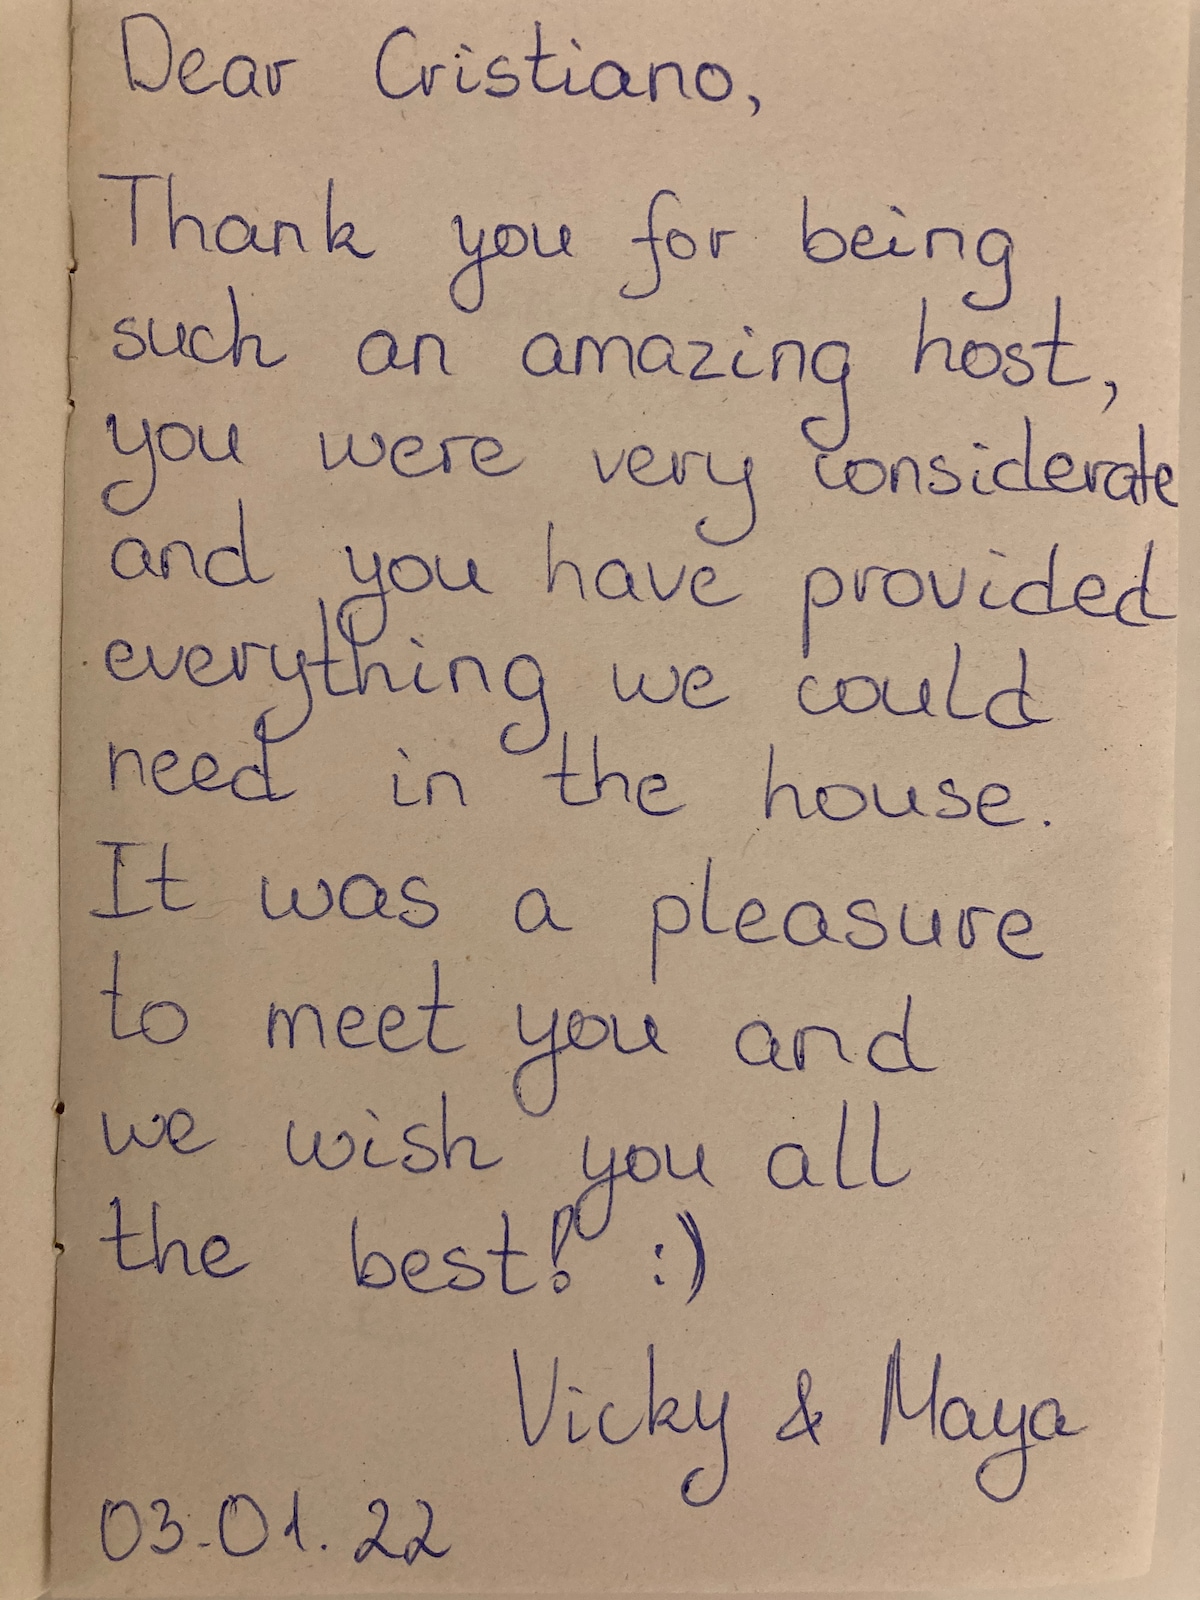 Dear Cristiano,
Thank you for being
such an amazing host,
you were very considerate
and you have provided
everything we could
need in the house.
It was a pleasure
to meet you and
we wish you all
the best! :)
Vicky & Maya
03.01.22